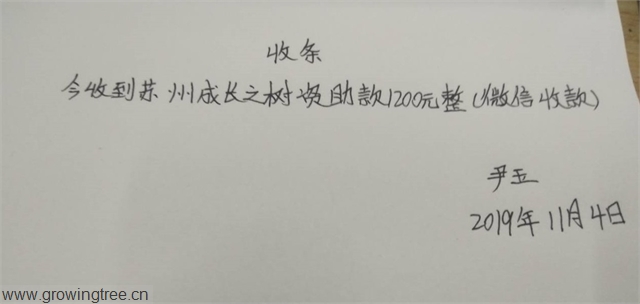 收条
今收到苏州成长之树资助款1200元整(微信收款)
尹玉
2019年11月4日
www.growingtree.cn